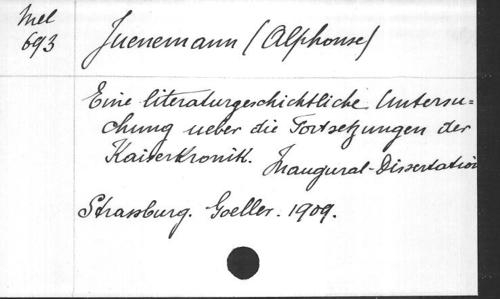 Mel
693
Juenemann (Alphonse)
Eine literaturgeschichtliche Untersu=
chung ueber die Fortsetzungen der
Kaiserkronik. Inaugural-Dissertation
Strassburg. Goeller. 1909.